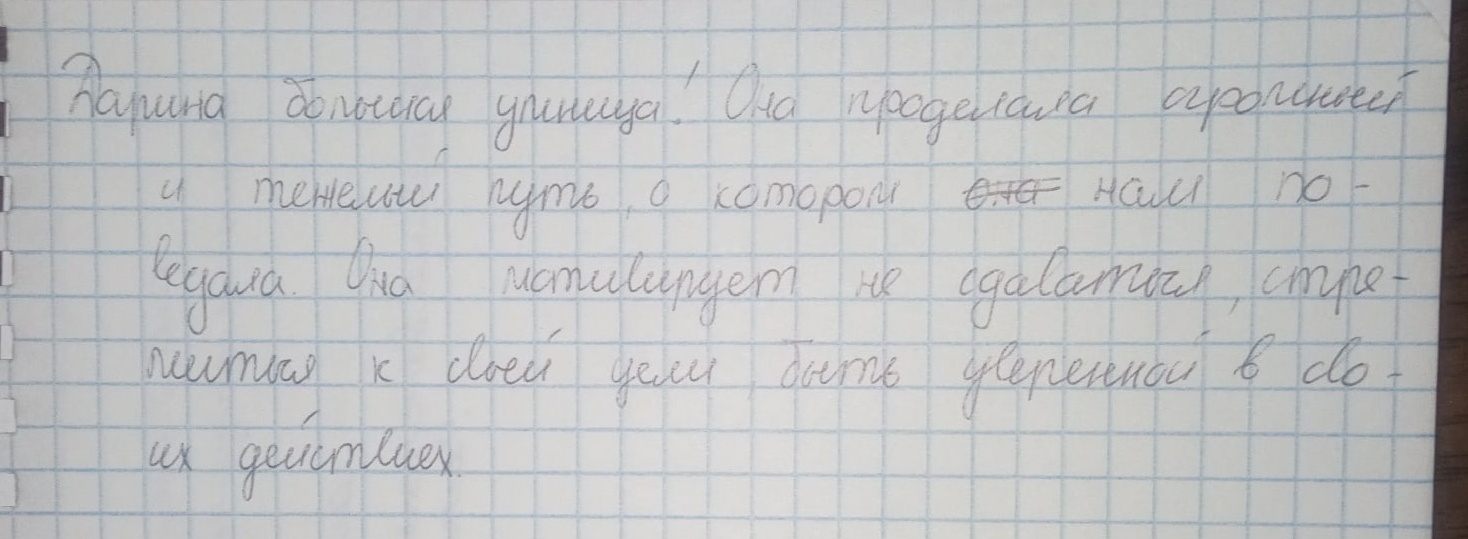 Дарина большая умница! Она проделала огромный
и тежелый путь, о котором ~~она~~ нам по-
ведала. Она мотивирует не сдаваться, стре-
миться к своей цели, быть уверенной в сво-
их действиех.